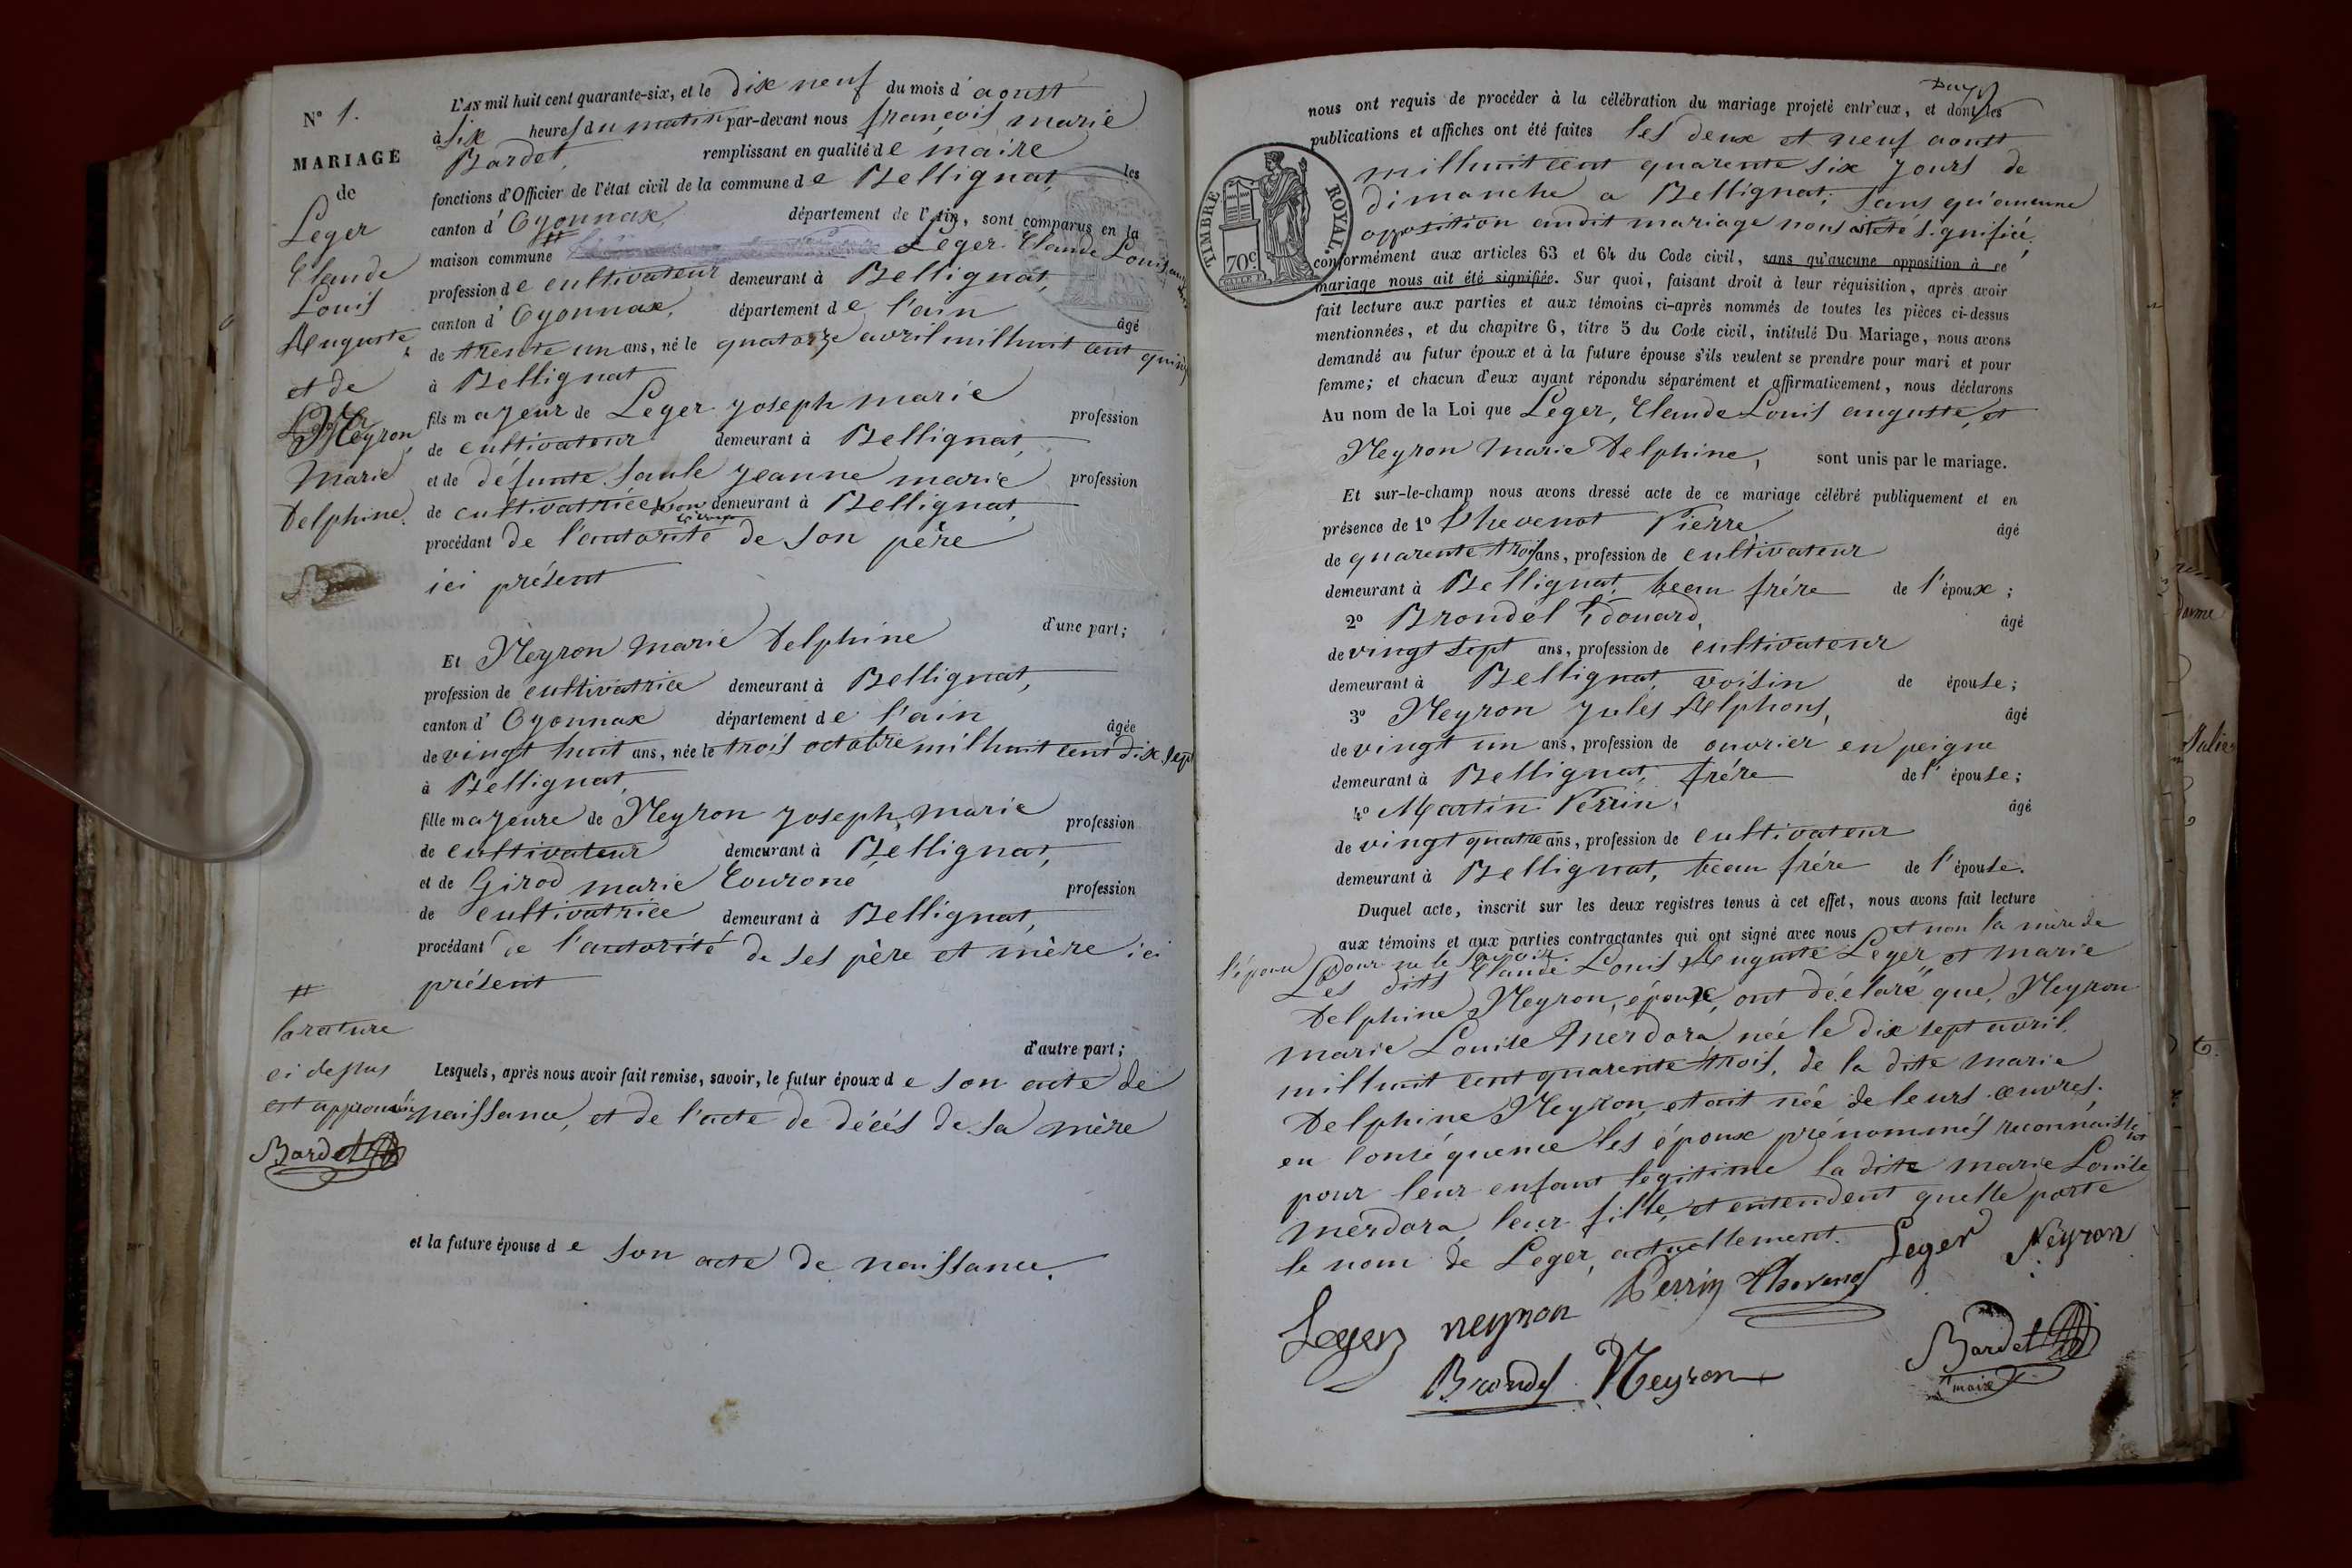 N° 1.
MARIAGE
de
Leger
Claude
Louis
Auguste
et de
Neyron
Marie
Delphine.
L'AN mil huit cent quarante-six, et le dix neuf du mois d'aoust
à six heures du matin par-devant nous françois marie
Bardet, remplissant en qualité de maire les
fonctions d'Officier de l'état civil de la commune de Bellignat,
canton d'Oyonnax, département de l'Ain, sont comparus en la
maison commune # Leger Claude Louis
profession de cultivateur demeurant à Bellignat,
canton d'Oyonnax, département de l'ain âgé
de trente un ans, né le quatorze avril mil huit cent quinze
à Bellignat
fils majeur de Leger joseph marie profession
de cultivateur demeurant à Bellignat,
et de défunte Saule jeanne marie profession
de cultivatrice demeurant à Bellignat,
procédant de l'autorité de son père
ici présent
d'une part;
Et Neyron marie Delphine
profession de cultivatrice demeurant à Bellignat,
canton d'Oyonnax département de l'ain âgée
de vingt huit ans, née le trois octobre mil huit cent dix sept
à Bellignat,
fille majeure de Neyron joseph marie profession
de cultivateur demeurant à Bellignat,
et de Girod marie profession
de cultivatrice demeurant à Bellignat,
procédant de l'autorité de ses père et mère ici
présent
d'autre part;
#
la rature
ci dessus
est approuvée
Bardet
Lesquels, après nous avoir fait remise, savoir, le futur époux de son acte de
naissance, et de l'acte de décés de sa mère
et la future épouse de son acte de naissance.
nous ont requis de procéder à la célébration du mariage projeté entr'eux, et dont les
publications et affiches ont été faites les deux et neuf aoust
mil huit cent quarente six jours de
dimanche a Bellignat, sans qu'aucune
opposition audit mariage nous ait été signifiée,
TIMBRE ROYAL.
70c
conformément aux articles 63 et 64 du Code civil, sans qu'aucune opposition à ce
mariage nous ait été signifiée. Sur quoi, faisant droit à leur réquisition, après avoir
fait lecture aux parties et aux témoins ci-après nommés de toutes les pièces ci-dessus
mentionnées, et du chapitre 6, titre 5 du Code civil, intitulé Du Mariage, nous avons
demandé au futur époux et à la future épouse s'ils veulent se prendre pour mari et pour
femme; et chacun d'eux ayant répondu séparément et affirmativement, nous déclarons
Au nom de la Loi que Leger, Claude Louis auguste, et
Neyron Marie Delphine, sont unis par le mariage.
Et sur-le-champ nous avons dressé acte de ce mariage célébré publiquement et en
présence de 1° Thevenot Pierre âgé
de quarente trois ans, profession de cultivateur
demeurant à Bellignat, beau frére de l'époux;
2° Brondel Edouard, âgé
de vingt sept ans, profession de cultivateur
demeurant à Bellignat, voisin de épouse;
3° Neyron jules Alphons, âgé
de vingt un ans, profession de ouvrier en peigne
demeurant à Bellignat, frére de l'épouse;
4° Martin Perrin, âgé
de vingt quatre ans, profession de cultivateur
demeurant à Bellignat, beau frére de l'épouse.
Duquel acte, inscrit sur les deux registres tenus à cet effet, nous avons fait lecture
aux témoins et aux parties contractantes qui ont signé avec nous et non la mère de
l'épouse pour ne le savoir.
Les dits Claude Louis Auguste Leger et marie
Delphine Neyron, époux, ont déclaré que, Neyron
marie Louise Merdora née le dix sept avril
mil huit cent quarente trois, de la dite marie
Delphine Neyron, etait née de leurs œuvres,
en conséquence les époux prénommés reconnaissent
pour leur enfant légitime la dite marie Louise
Merdora, leur fille, et entendent quelle porte
le nom de Leger, actuellement.
Leger neyron Perrin Thevenot Leger Neyron
Brondel Neyron Bardet
maire